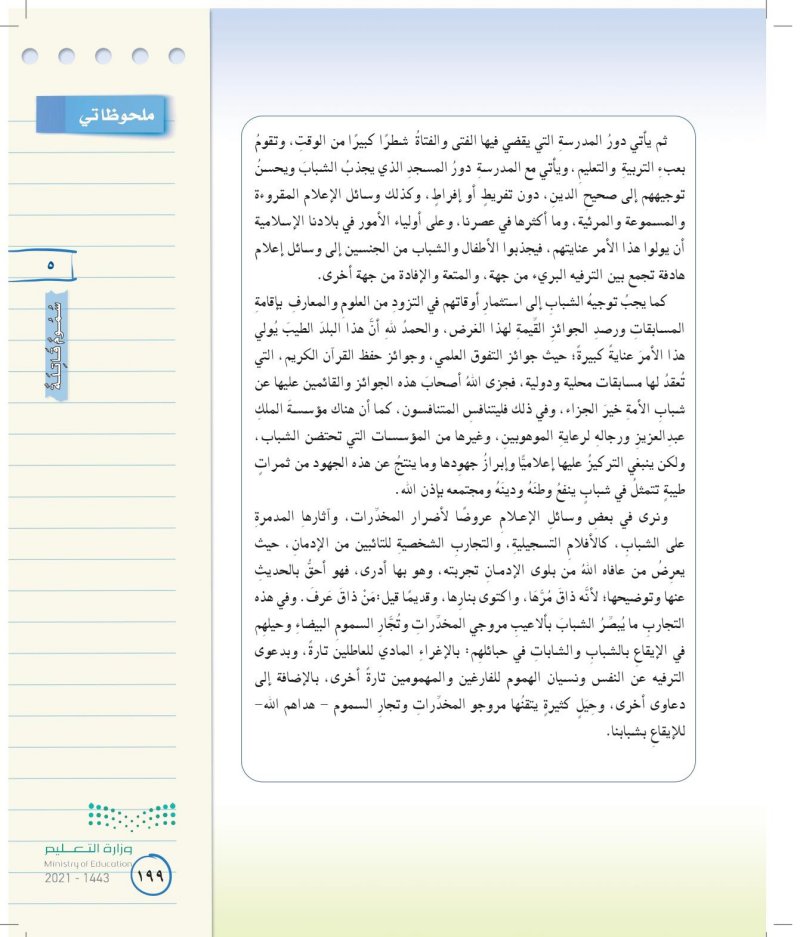 ملحوظاتي
٥
سُمُومٌ قَاتِلَةٌ
ثم يأتي دورُ المدرسةِ التي يقضي فيها الفتى والفتاةُ شطرًا كبيرًا من الوقتِ، وتقومُ
بعبءِ التربيةِ والتعليمِ، ويأتي مع المدرسةِ دورُ المسجدِ الذي يجذبُ الشبابَ ويحسنُ
توجيههم إلى صحيحِ الدين، دون تفريطٍ أو إفراطٍ، وكذلك وسائل الإعلام المقروءة
والمسموعة والمرئية، وما أكثرها في عصرنا، وعلى أولياء الأمور في بلادنا الإسلامية
أن يولوا هذا الأمر عنايتهم، فيجذبوا الأطفال والشباب من الجنسين إلى وسائل إعلام
هادفة تجمع بين الترفيه البريء من جهة، والمتعة والإفادة من جهة أخرى.
كما يجبُ توجيهُ الشبابِ إلى استثمارِ أوقاتهم في التزودِ من العلومِ والمعارفِ بإقامةِ
المسابقاتِ ورصدِ الجوائزِ القيِّمةِ لهذا الغرض، والحمدُ للهِ أنَّ هذا البلدَ الطيبَ يُولي
هذا الأمرَ عنايةً كبيرةً؛ حيث جوائز التفوق العلمي، وجوائز حفظ القرآن الكريم، التي
تُعقدُ لها مسابقات محلية ودولية، فجزى اللهُ أصحابَ هذه الجوائز والقائمين عليها عن
شبابِ الأمةِ خيرَ الجزاء، وفي ذلك فليتنافسِ المتنافسون، كما أن هناك مؤسسةَ الملكِ
عبدالعزيزِ ورجالهِ لرعاية الموهوبين، وغيرها من المؤسسات التي تحتضن الشباب،
ولكن ينبغي التركيزُ عليها إعلاميًّا وإبرازُ جهودها وما ينتجُ عن هذه الجهود من ثمراتٍ
طيبةٍ تتمثلُ في شبابٍ ينفعُ وطنَهُ ودينَهُ ومجتمعه بإذن الله.
ونرى في بعض وسائلِ الإعلامِ عروضًا لأضرار المخدِّرات، وآثارها المدمرةِ
على الشبابِ، كالأفلام التسجيليةِ، والتجاربِ الشخصيةِ للتائبين من الإدمانِ، حيث
يعرِضُ من عافاه اللهُ من بلوى الإدمانِ تجربته، وهو بها أدرى، فهو أحقُّ بالحديثِ
عنها وتوضيحها؛ لأنَّه ذاقَ مُرَّهَا، واكتوى بنارِها، وقديمًا قيل:مَنْ ذاقَ عَرفَ. وفي هذه
التجاربِ ما يُبصِّرُ الشبابَ بألاعيبِ مروجي المخدِّراتِ وتُجَّارِ السمومِ البيضاءِ وحيلهم
في الإيقاعِ بالشبابِ والشاباتِ في حبائلهم: بالإغراءِ المادي للعاطلين تارةً، وبدعوى
الترفيه عن النفس ونسيان الهموم للفارغين والمهمومين تارةً أخرى، بالإضافة إلى
دعاوى أخرى، وحِيَلٍ كثيرةٍ يتقنُها مروجو المخدِّراتِ وتجارِ السموم – هداهم الله–
للإيقاعِ بشبابنا.
وزارة التعليم
Ministry of Education
2021 - 1443
١٩٩